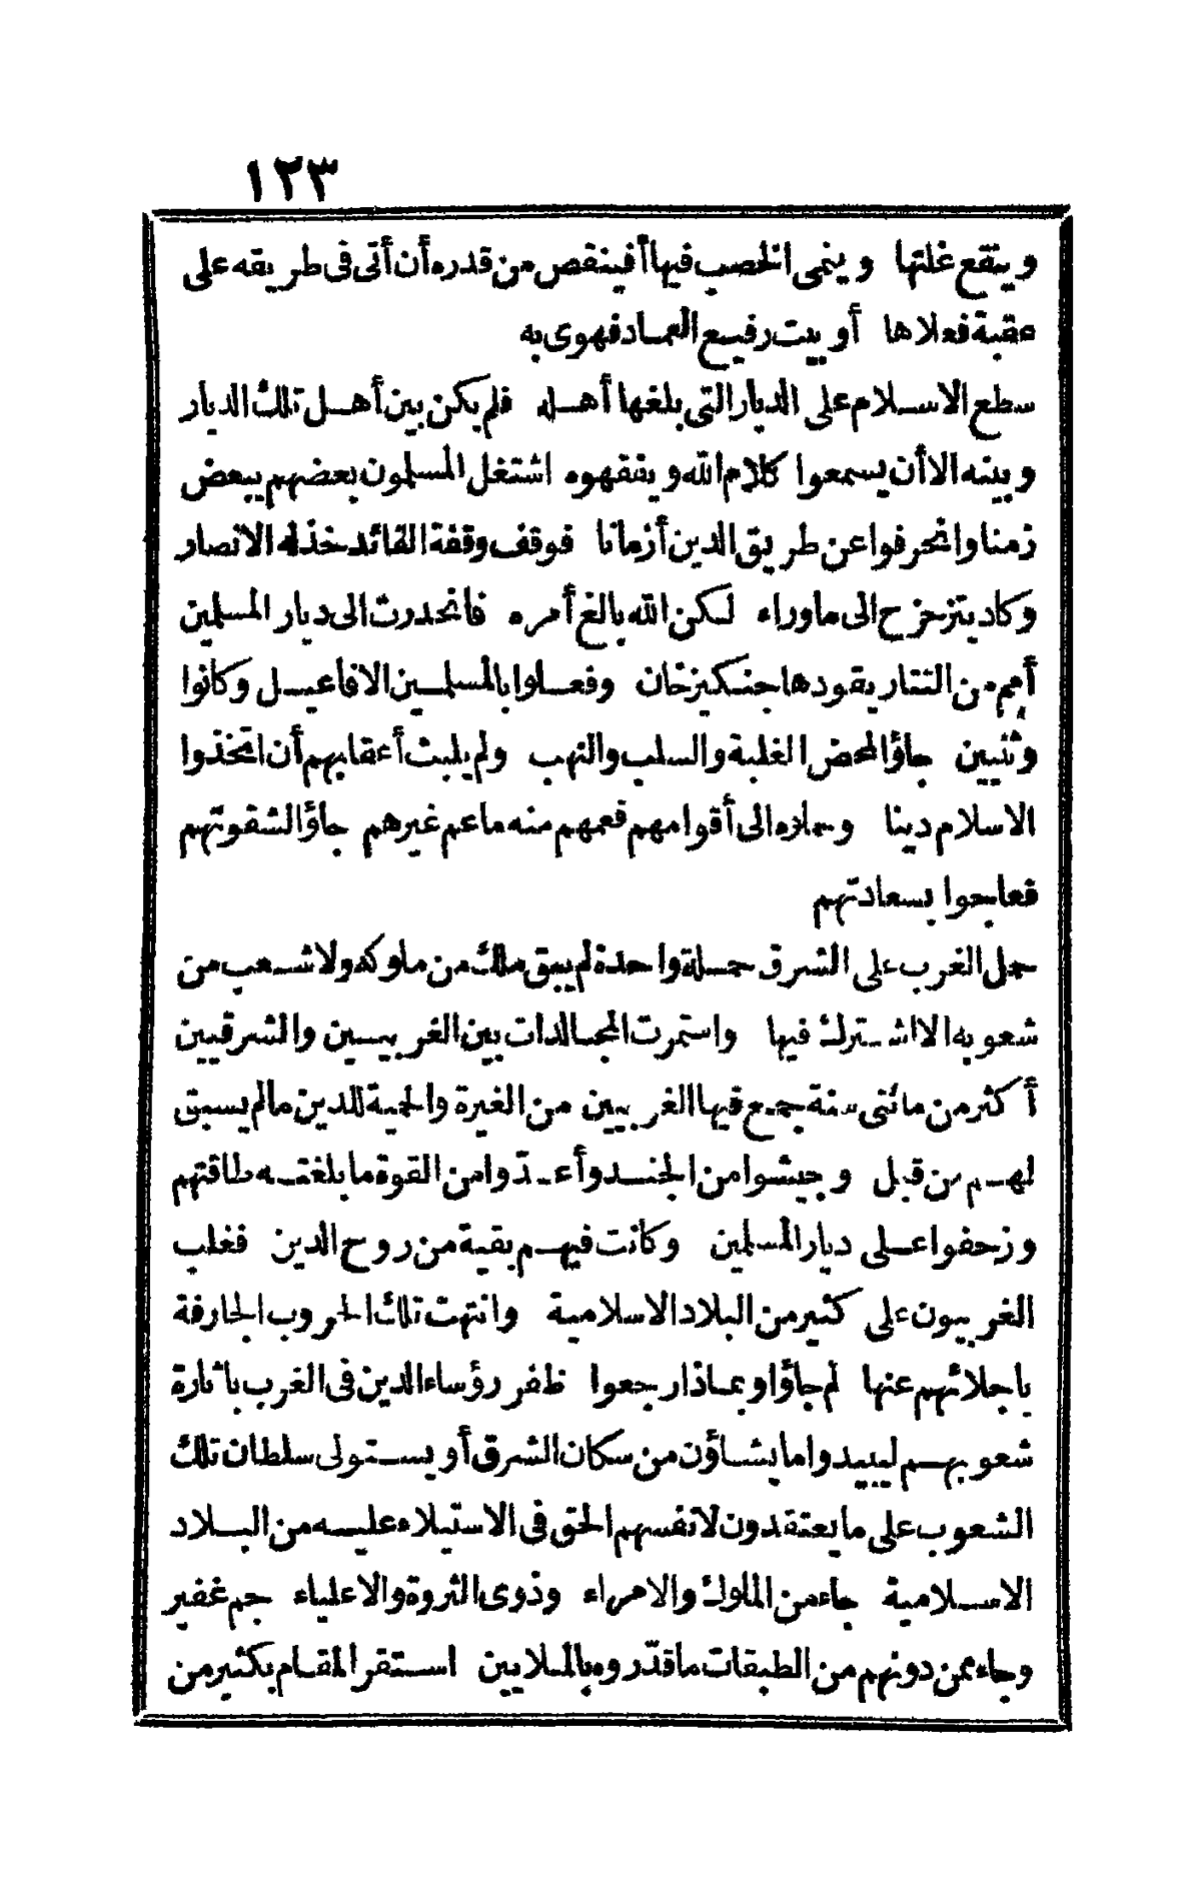 ١٢٣
وينقع غلتها وينمى الخصب فيها أفينقص من قدره أن أتى فى طريقه على
عقبة فعلاها أو بيت رفيع العماد فهوى به
سطع الاسلام على الديار التى بلغها أهله فلم يكن بين أهل تلك الديار
وبينه الا أن يسمعوا كلام الله ويفقهوه اشتغل المسلمون بعضهم ببعض
زمنا وانحرفوا عن طريق الدين أزمانا فوقف وقفة القائد خذله الانصار
وكاد يتزحزح الى ماوراء لكن الله بالغ أمره فانحدرت الى ديار المسلمين
أمم من التتار يقودها جنكيزخان وفعلوا بالمسلمين الافاعيل وكانوا
وثنيين جاؤا لمحض الغلبة والسلب والنهب ولم يلبث أعقابهم أن اتخذوا
الاسلام دينا وحملوه الى أقوامهم فعمهم منه ماعم غيرهم جاؤا لشقوتهم
فعاجوا بسعادتهم
حمل الغرب على الشرق حملة واحدة لم يبق ملك من ملوكه ولا شعب من
شعوبه الا اشترك فيها واستمرت المجالدات بين الغربيين والشرقيين
أكثر من مائتى سنة جمع فيها الغربيين من الغيرة والحمية للدين مالم يسبق
لهم من قبل وجيشوا من الجند وأعدّوا من القوة ما بلغته طاقتهم
وزحفوا على ديار المسلمين وكانت فيهم بقية من روح الدين فغلب
الغربيون على كثير من البلاد الاسلامية وانتهت تلك الحروب الجارفة
باجلائهم عنها لم جاؤا وبماذا رجعوا ظفر رؤساء الدين فى الغرب باثارة
شعوبهم ليبيدوا ما يشاؤن من سكان الشرق أو يستولى سلطان تلك
الشعوب على ما يعتقدون لانفسهم الحق فى الاستيلاء عليه من البلاد
الاسلامية جاء من الملوك والامراء وذوى الثروة والاعلياء جم غفير
وجاء ممن دونهم من الطبقات ماقدّروه بالملايين استقر المقام بكثير من